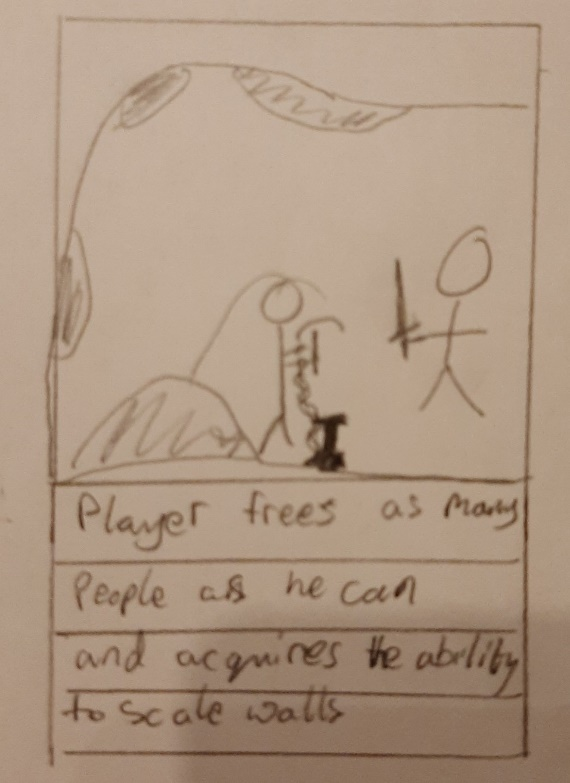 Player frees as many
People as he can
and acquires the ability
to scale walls